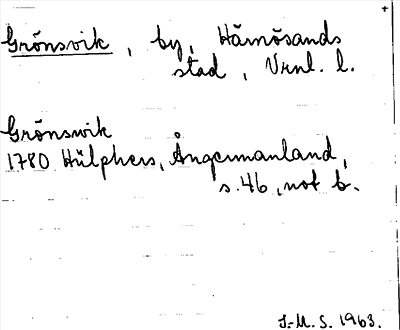 Grönsvik, by, Härnösands
stad, Vrnl. l.
Grönswik
1780 Hülphers, Ångermanland,
s. 46, not b.
I.-M. S. 1963.